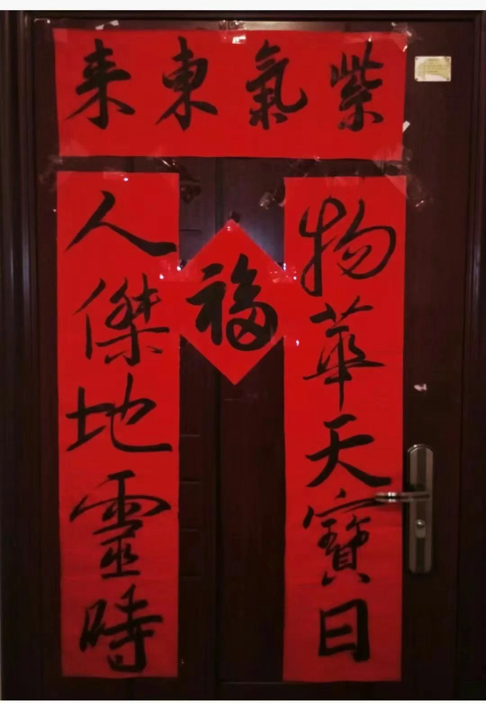 紫氣東来
物華天寶日
人傑地靈時
福